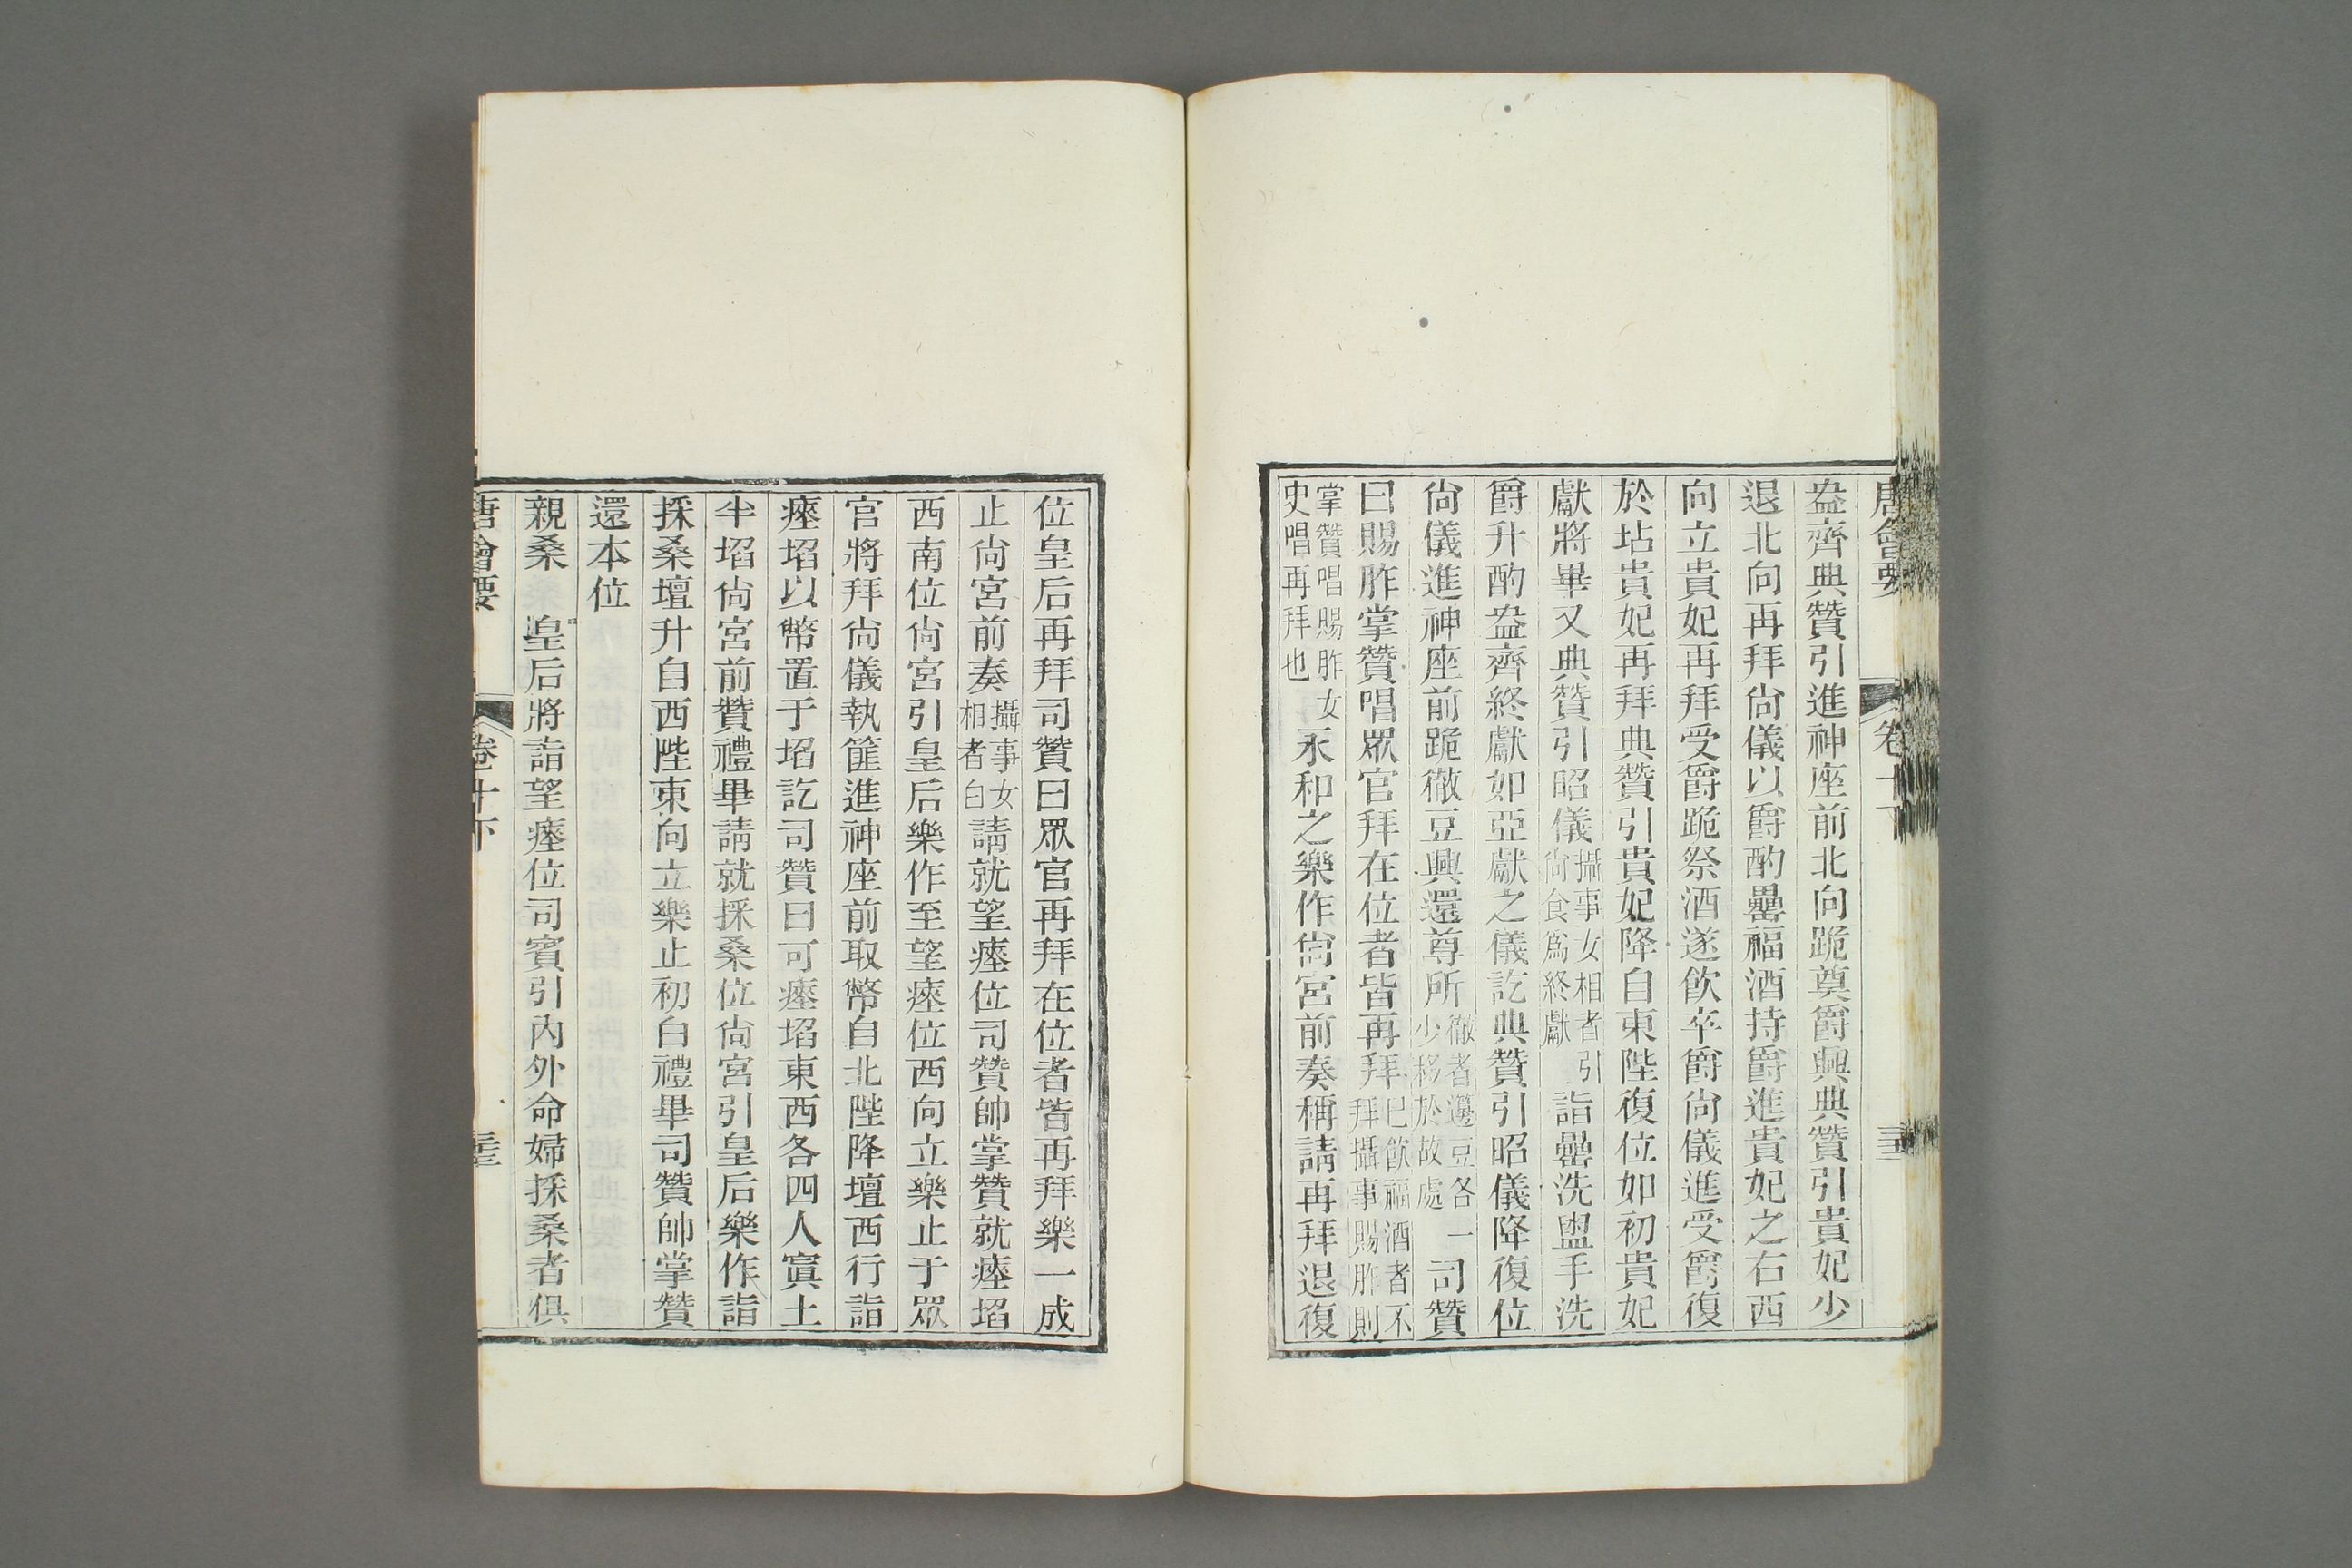 唐會要 卷十下 三五
盎齊典贊引進神座前北向跪奠爵興典贊引貴妃少
退北向再拜尙儀以爵酌罍福酒持爵進貴妃之右西
向立貴妃再拜受爵跪祭酒遂飮卒爵尙儀進受爵復
於坫貴妃再拜典贊引貴妃降自東陛復位如初貴妃
獻將畢又典贊引昭儀攝事女相者引尙食爲終獻詣罍洗盥手洗
爵升酌盎齊終獻如亞獻之儀訖典贊引昭儀降復位
尙儀進神座前跪徹豆興還尊所徹者籩豆各一少移於故處司贊
曰賜胙掌贊唱眾官拜在位者皆再拜已飮福酒者不拜攝事賜胙則
掌贊唱賜胙女史唱再拜也永和之樂作尙宮前奏稱請再拜退復
位皇后再拜司贊曰眾官再拜在位者皆再拜樂一成
止尙宮前奏攝事女相者白請就望瘞位司贊帥掌贊就瘞埳
西南位尙宮引皇后樂作至望瘞位西向立樂止于眾
官將拜尙儀執篚進神座前取幣自北陛降壇西行詣
瘞埳以幣置于埳訖司贊曰可瘞埳東西各四人寘土
半埳尙宮前贊禮畢請就採桑位尙宮引皇后樂作詣
採桑壇升自西陛東向立樂止初白禮畢司贊帥掌贊
還本位
親桑 皇后將詣望瘞位司賓引內外命婦採桑者俱
唐會要 卷十下 三五